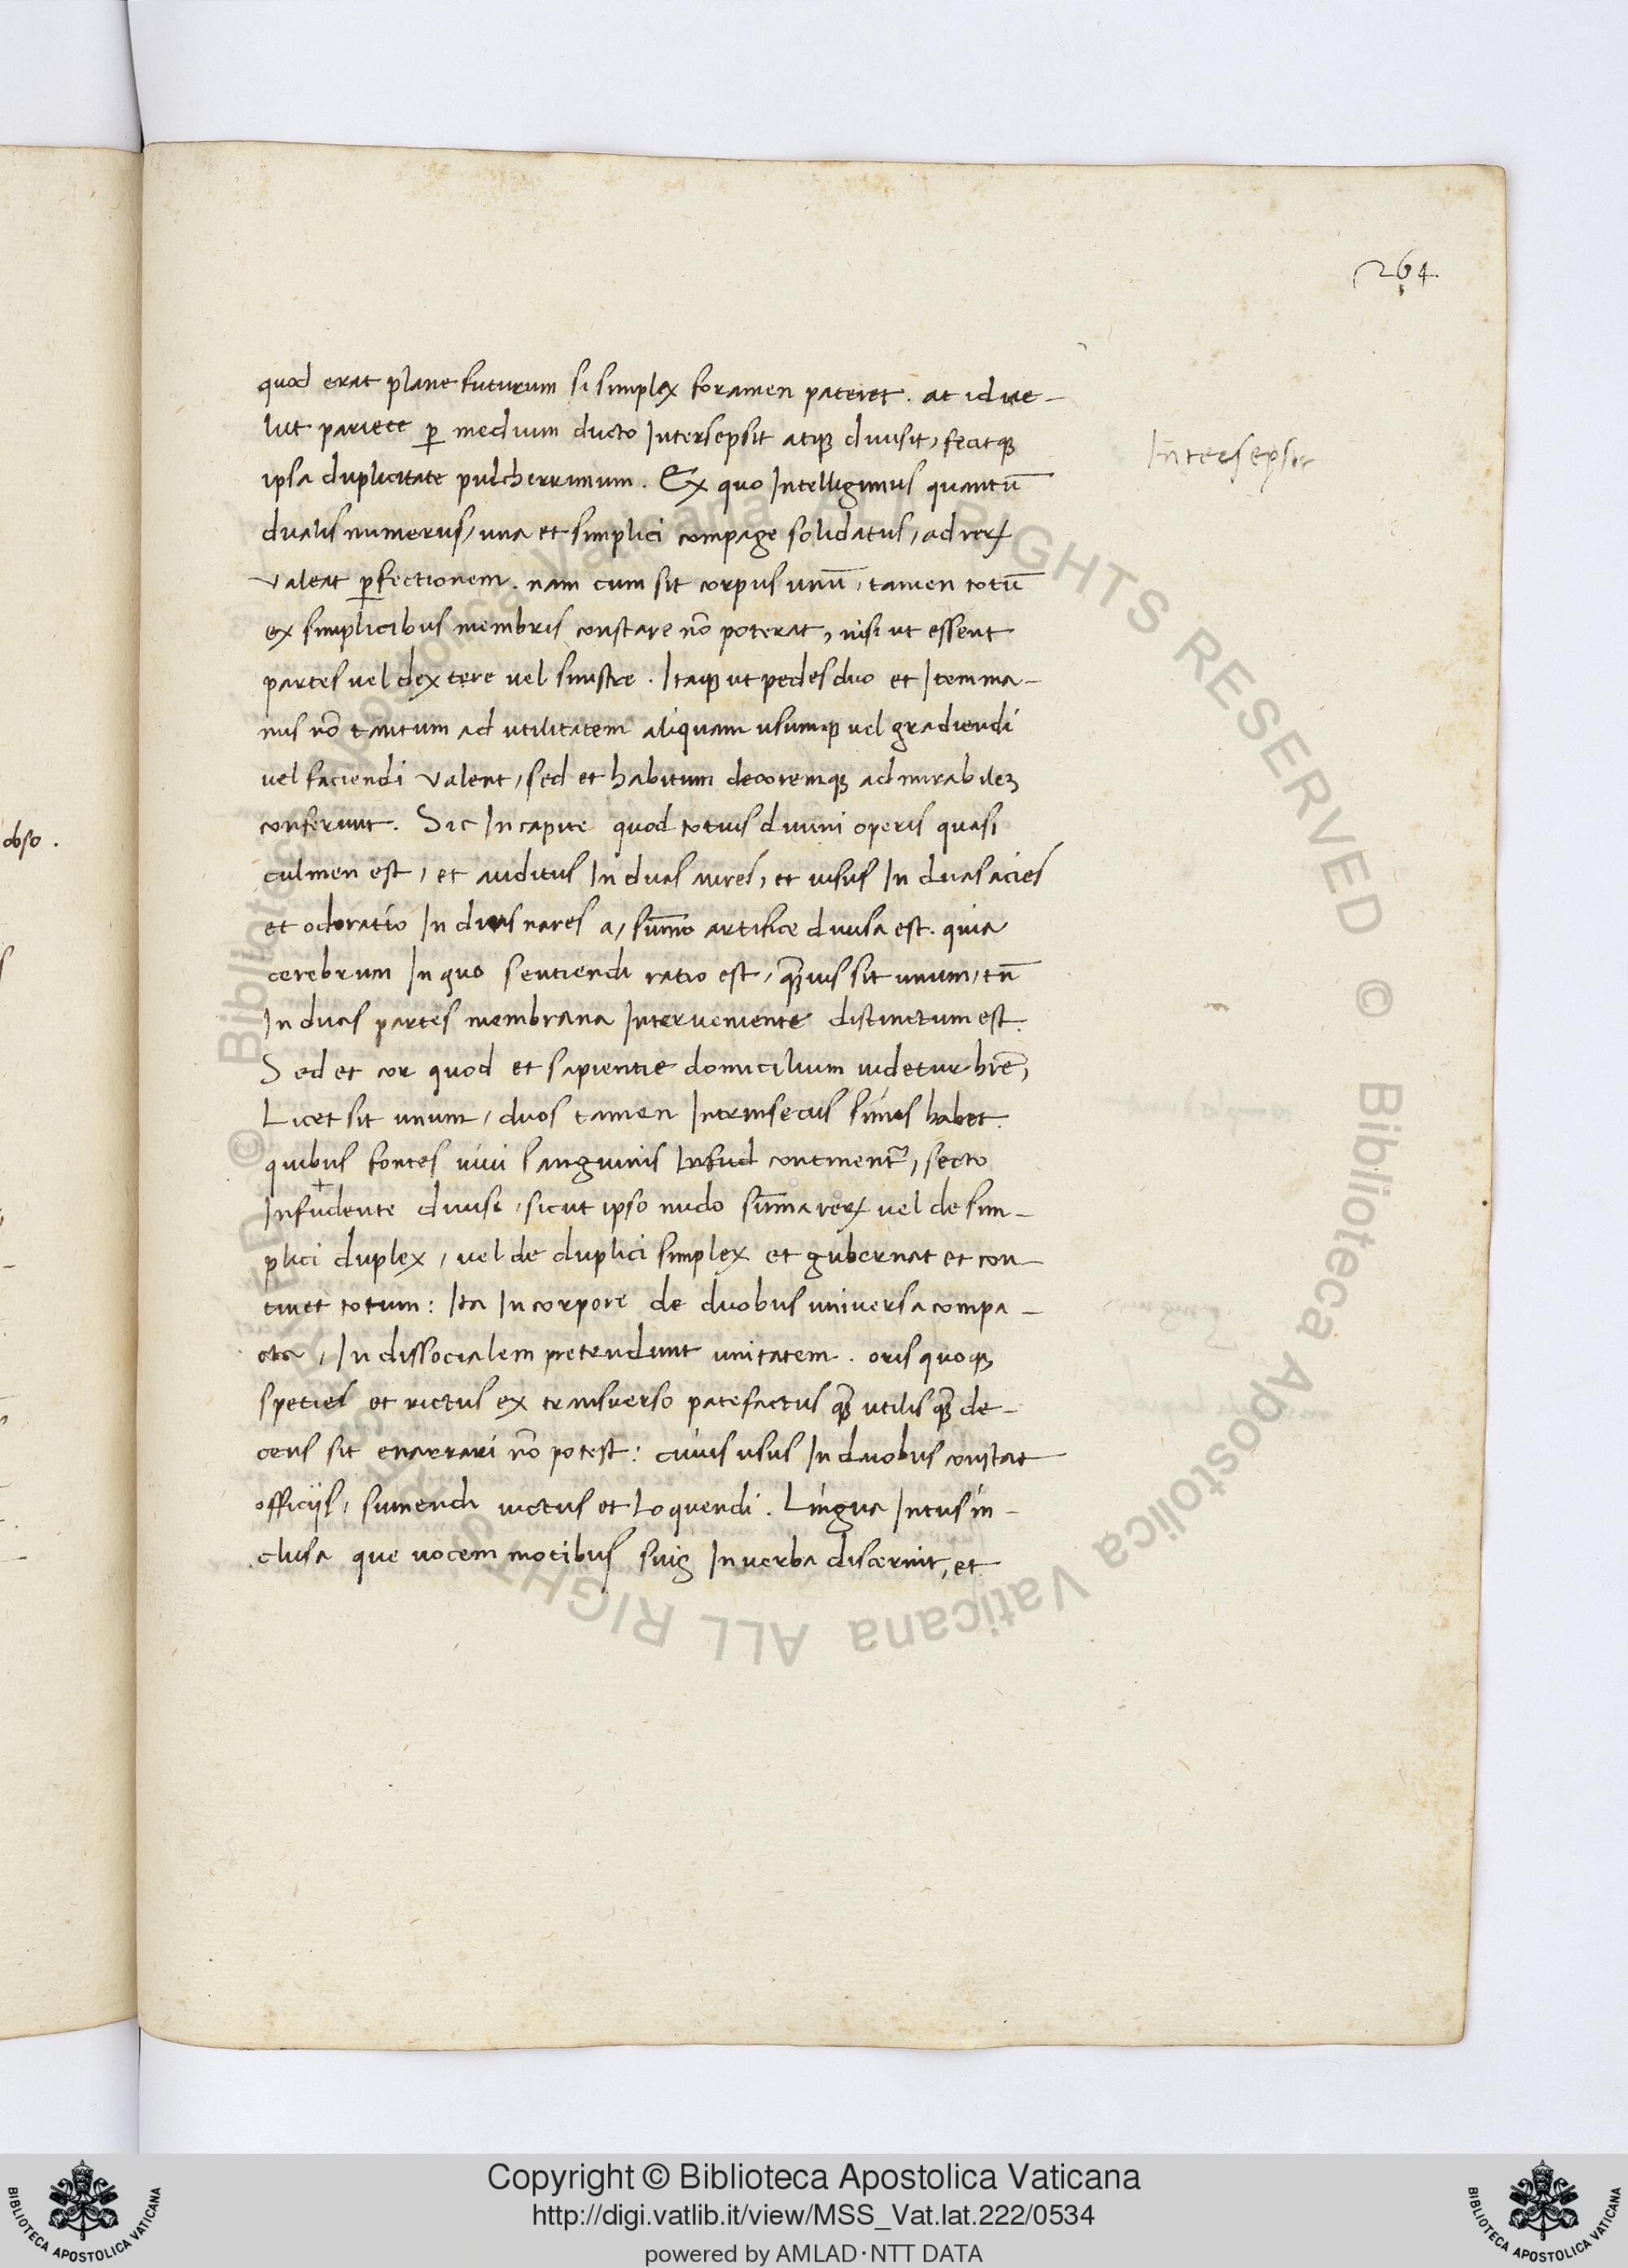 264
quod erat plane futurum si simplex foramen pateret. at id ue-
lut pariete p̱ medium ducto Intersepsit atqȝ diuisit, fecitqȝ
ipsa duplicitate pulcherrimum. Ex quo Intelligimus quantū
dualis numerus, una et simplici compage solidatus, ad reꝝ
valeat p̱fectionem. nam cum sit corpus unū, tamen totū
ex simplicibus membris constare nō poterat, nisi ut essent
partes vel dextere vel sinistre. Itaqȝ ut pedes duo et Item ma-
nus nō tantum ad utilitatem aliquam usumqȝ vel gradiendi
vel faciendi valent, sed et habitum decoremqȝ admirabileȝ
conferunt. Sic In capite quod totius diuini operis quasi
culmen est, et auditus In duas aures, et uisus In duas acies
et odoratio In duas nares a, sūmo artifice diuisa est. quia
cerebrum In quo sentiendi ratio est, qȝuis sit unum, tn̄
In duas partes membrana Interueniente distinctum est.
Sed et cor quod et sapientie domicilium uidetur hr̄e,
Licet sit unum, duos tamen Intrinsecus sinus habet.
quibus fontes uiui sanguinis Infud continent᷑, secto
Infudente diuisi, sicut ipso mudo sūma reꝝ vel de sim-
plici duplex, vel de duplici simplex et gubernat et con-
tinet totum: Ita In corpore de duobus universa compa-
cta, In dissocialem pretendunt unitatem. oris quoqȝ
speties et rictus ex transuerso patefactus qȝ utilis qȝ de-
cens sit enarrari nō potest: cuius usus In duobus constat
officijs, sumendi uictus et Loquendi. Lingua Intus in-
clusa que uocem motibus suis In uerba discernit, et
Intersepsit
obso.
© Biblioteca Apostolica Vaticana ALL RIGHTS RESERVED
Copyright © Biblioteca Apostolica Vaticana
http://digi.vatlib.it/view/MSS_Vat.lat.222/0534
powered by AMLAD·NTT DATA
BIBLIOTECA APOSTOLICA VATICANA
BIBLIOTECA APOSTOLICA VATICANA